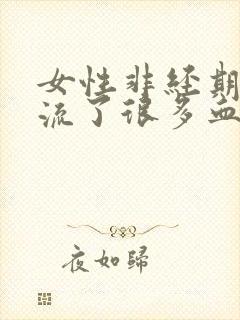 女性非经期
流了很多血
夜如歸